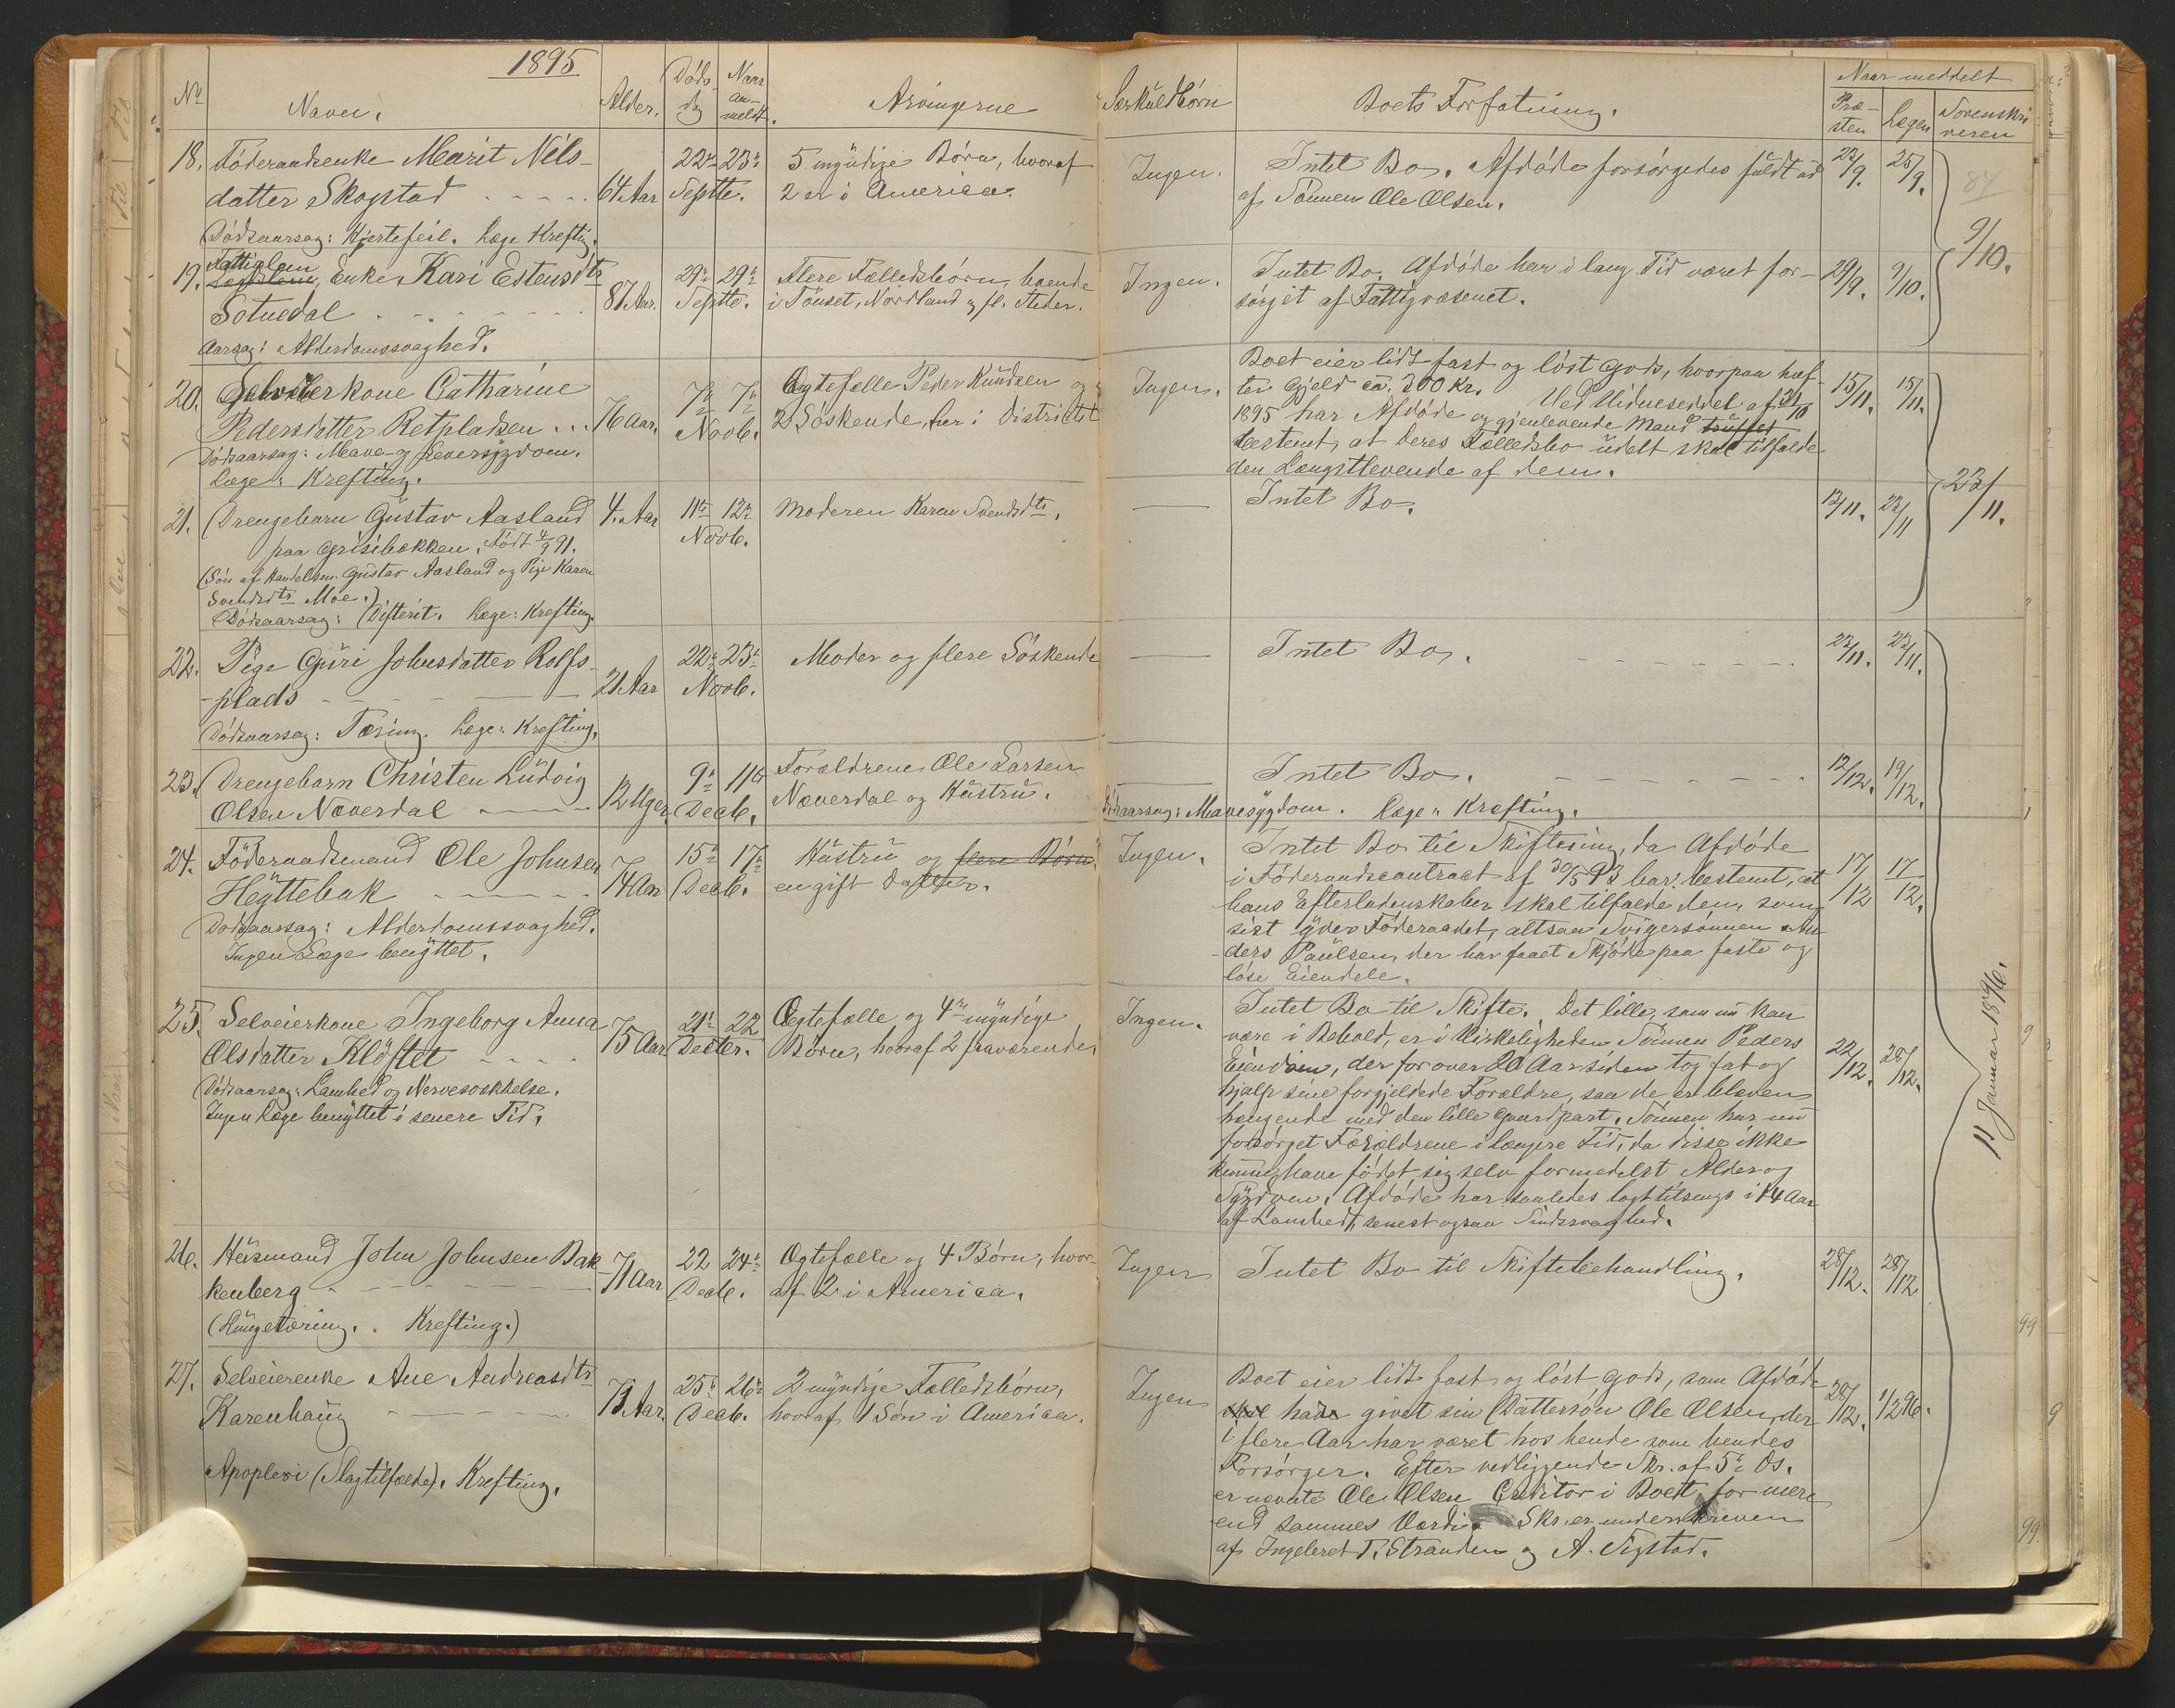 1895
No
Navn.
Alder.
Døds-
dag
Naar
an-
meldt.
Arvingerne
Særkuldbörn
Boets Forfatning.
Naar meddelt
Præ-
sten
Lægen
Sorenskri
veren
18. Föderaadsenke Marit Nils-
datter Skogstad
64 Aar
22de 23de
Septbr.
5 myndige Börn, hvoraf
2 er i America.
Ingen.
Intet Bo. Afdöde forsörgedes fuldt ud
af Sönnen Ole Olsen.
23/9.
25/9.
84
Dödsaarsag: Hjertefeil. Læge Krefting.
19. Fattiglem
Enke Kari Estensdtr
Sotnedal
87 Aar.
29de 29de
Septbr.
Flere Fælledsbörn, boende
i Tönset, Nordland og fl. Steder.
Ingen.
Intet Bo. Afdöde har i lang Tid været for-
sörget af Fattigvæsenet.
29/9.
9/10.
9/10.
Aarsag: Alderdomssvaghed.
20. Selveierkone Catharine
Pedersdatter Retpladsen ...
76 Aar.
7de 7de
Novb.
Ægtefælle Peder Knudsen og
2 Söskende, her i Distriktet
Ingen.
Boet eier lidt fast og löst Gods, hvorpaa hæf-
ter Gjeld ca. 300 Kr. Ved Vidneseddel af 31/10
1895 har Afdöde og gjenlevende Mand truffet
bestemt, at deres Fælledsbo udelt skal tilfalde
den Længstlevende af dem.
15/11.
15/11.
Dödsaarsag: Mave- og Leversygdom.
Læge: Krefting.
21. Drengebarn Gustav Aasland
paa Grisibækken. Födt 4/9 91.
(Sön af Handelsm. Gustav Aasland og Pige Karen
Svendsdtr Moe.)
Dödsaarsag: Difterit. Læge: Krefting.
4. Aar
11te 12te
Novb.
Moderen Karen Svendsdtr.
Intet Bo.
13/11.
23/11
23/11.
22. Pige Guri Johnsdatter Rolfs-
plads
21 Aar
22de 23de
Novb.
Moder og flere Söskende
Intet Bo.
23/11.
23/11.
Dödsaarsag: Tæring. Læge: Krefting.
23. Drengebarn Christen Ludvig
Olsen Næverdal
12 Uger
9de 11te
Decb.
Forældrene Ole Larsen
Næverdal og Hustru.
Intet Bo.
12/12.
19/12.
Dödsaarsag: Mavesygdom. Læge: Krefting.
24. Föderaadsmand Ole Johnsen
Hyttebak
74 Aar
15de 17de
Decb.
Hustru og flere Börn,
en gift Datter.
Ingen.
Intet Bo til Skiftning, da Afdöde
i Föderaadscontract af 30/5 93 har bestemt, at
hans Efterladenskaber skal tilfalde dem, som
sist yder Föderaadet, altsaa Svigersönnen An-
ders Paulsen, der har faaet Skjöde paa faste og
löse Eiendele.
17/12
17/12.
Dödsaarsag: Alderdomssvaghed.
Ingen Læge benyttet.
25. Selveierkone Ingeborg Anna
Olsdatter Klöftet
75 Aar
21de 22
Decbr.
Ægtefælle og 4re myndige
Börn, hvoraf 2 fraværende.
Ingen.
Intet Bo til Skifte. Det lille, som nu kan
være i Behold, er i Virkeligheden Sönnen Peders
Eiendom, der for over 20 Aar siden tog fat og
hjalp sine forgjeldede Forældre, saa de er bleven
hængende med den lille Gaardpart. Sönnen har nu
forsörget Forældrene i længere Tid, da disse ikke
kunne have födet sig selv formedelst Alder og
Sygdom. Afdöde har saaledes lagt tilsengs i 14 Aar
af Lamhed, senest ogsaa Sindssvaghed.
22/12.
28/12.
11 Januar 1896.
Dödsaarsag: Lamhed og Nervesvækkelse.
Ingen Læge benyttet i senere Tid.
26. Husmand John Johnsen Bak-
kenberg
71 Aar
22 24de
Decb.
Ægtefælle og 4 Börn, hvor-
af 2 i America.
Ingen
Intet Bo til Skiftebehandling.
28/12.
28/12
(Lungetæring. Krefting.)
27. Selveierenke Ane Andreasdtr
Karenhaug
73 Aar.
25de 26de
Decb.
2 myndige Fælledsbörn,
hvoraf 1 Sön i America.
Ingen
Boet eier lidt fast og löst Gods, som Afdöde
havde givet sin Dattersön Ole Olsen, der
i flere Aar har været hos hende som hendes
Forsörger. Efter vedliggende Skr. af 5te Ds.
er nævnte Ole Olsen Creditor i Boet for mere
end sammes Værdi. Skr. er underskreven
af Ingebret T. Stranden og A. Sigstad.
28/12.
1/2 96.
Apoplexi (Slagtilfælde). Krefting.